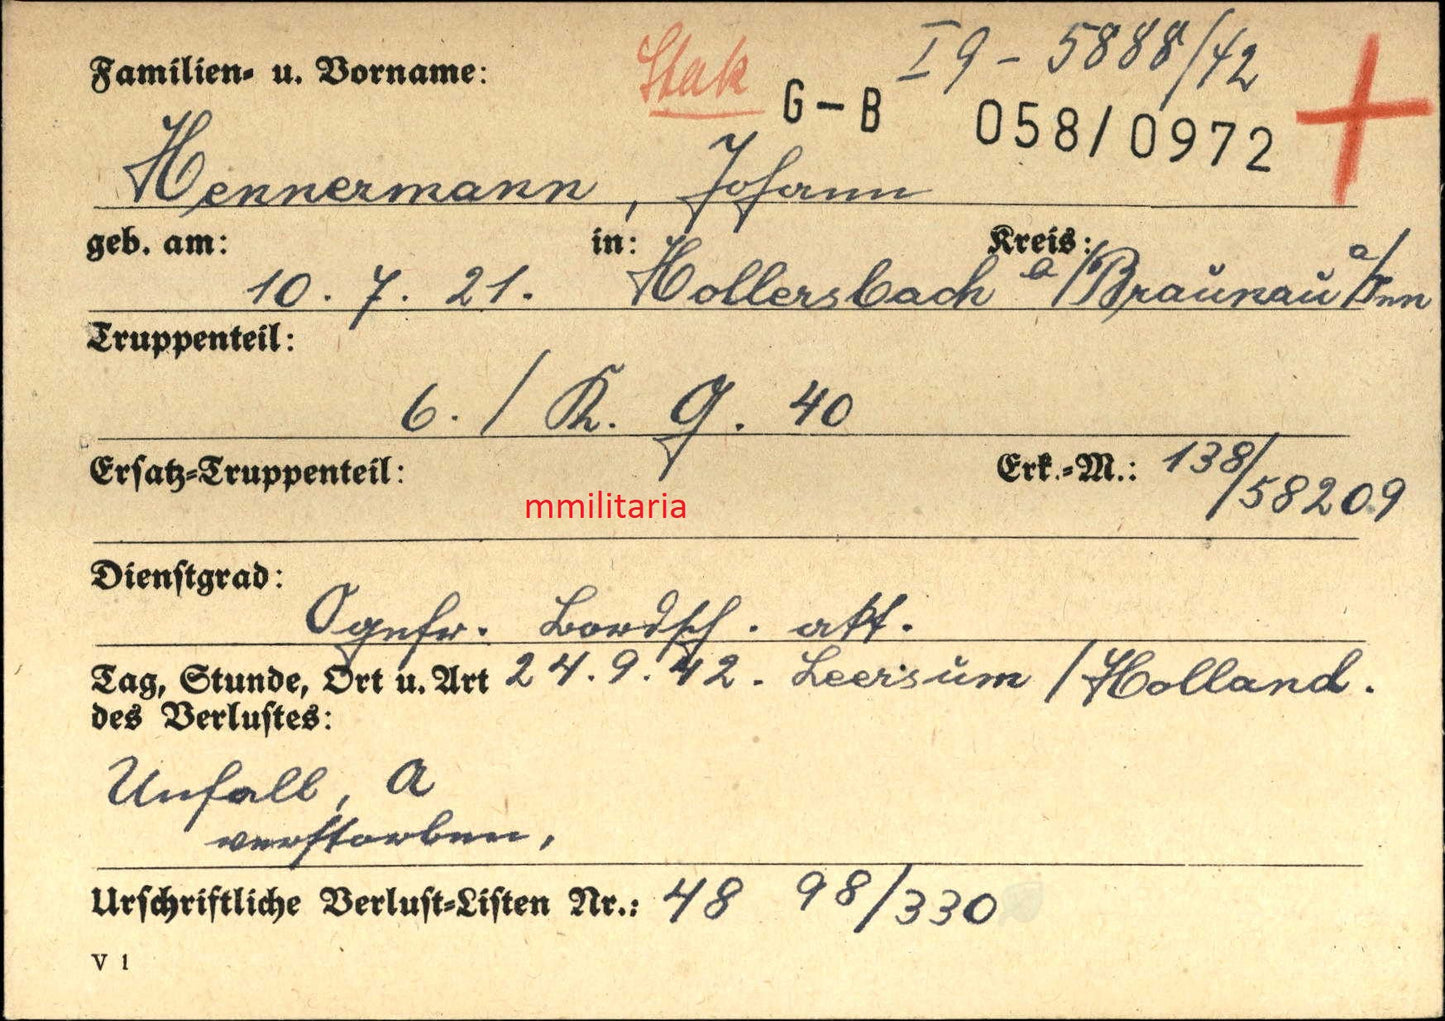 Stak
I 9 - 5888/42
Familien- u. Vorname:
G-B 058/0972
Hennermann, Johann
geb. am: in: Kreis:
10. 7. 21. Hollersbach b/Braunau a/Inn
Truppenteil:
6. / K. G. 40
Ersatz-Truppenteil: Erk.-M.: 138/58209
mmilitaria
Dienstgrad:
Ogefr. Bordsch. akt.
Tag, Stunde, Ort u. Art 24. 9. 42. Leersum / Holland.
des Verlustes:
Unfall, a
verstorben,
Urschriftliche Verlust-Listen Nr.: 48 98/330
V 1